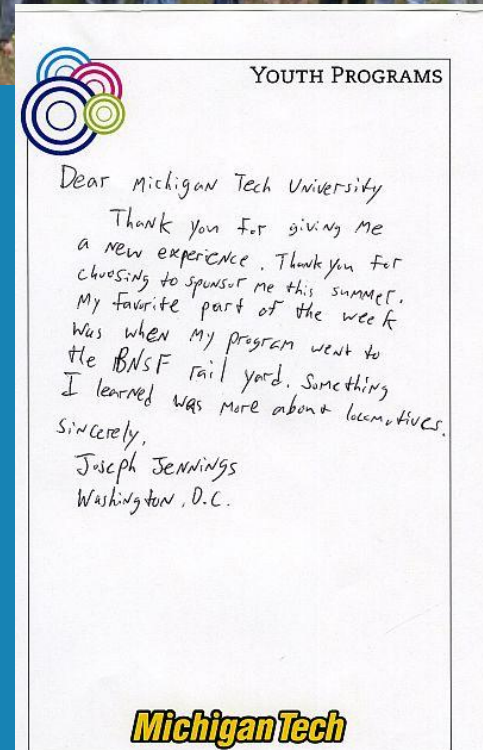 YOUTH PROGRAMS
Dear Michigan Tech University
Thank you for giving me
a new experience. Thank you for
choosing to sponsor me this summer.
My favorite part of the week
was when my program went to
the BNSF rail yard. Something
I learned was more about locomotives.
Sincerely,
Joseph Jennings
Washington, D.C.
Michigan Tech